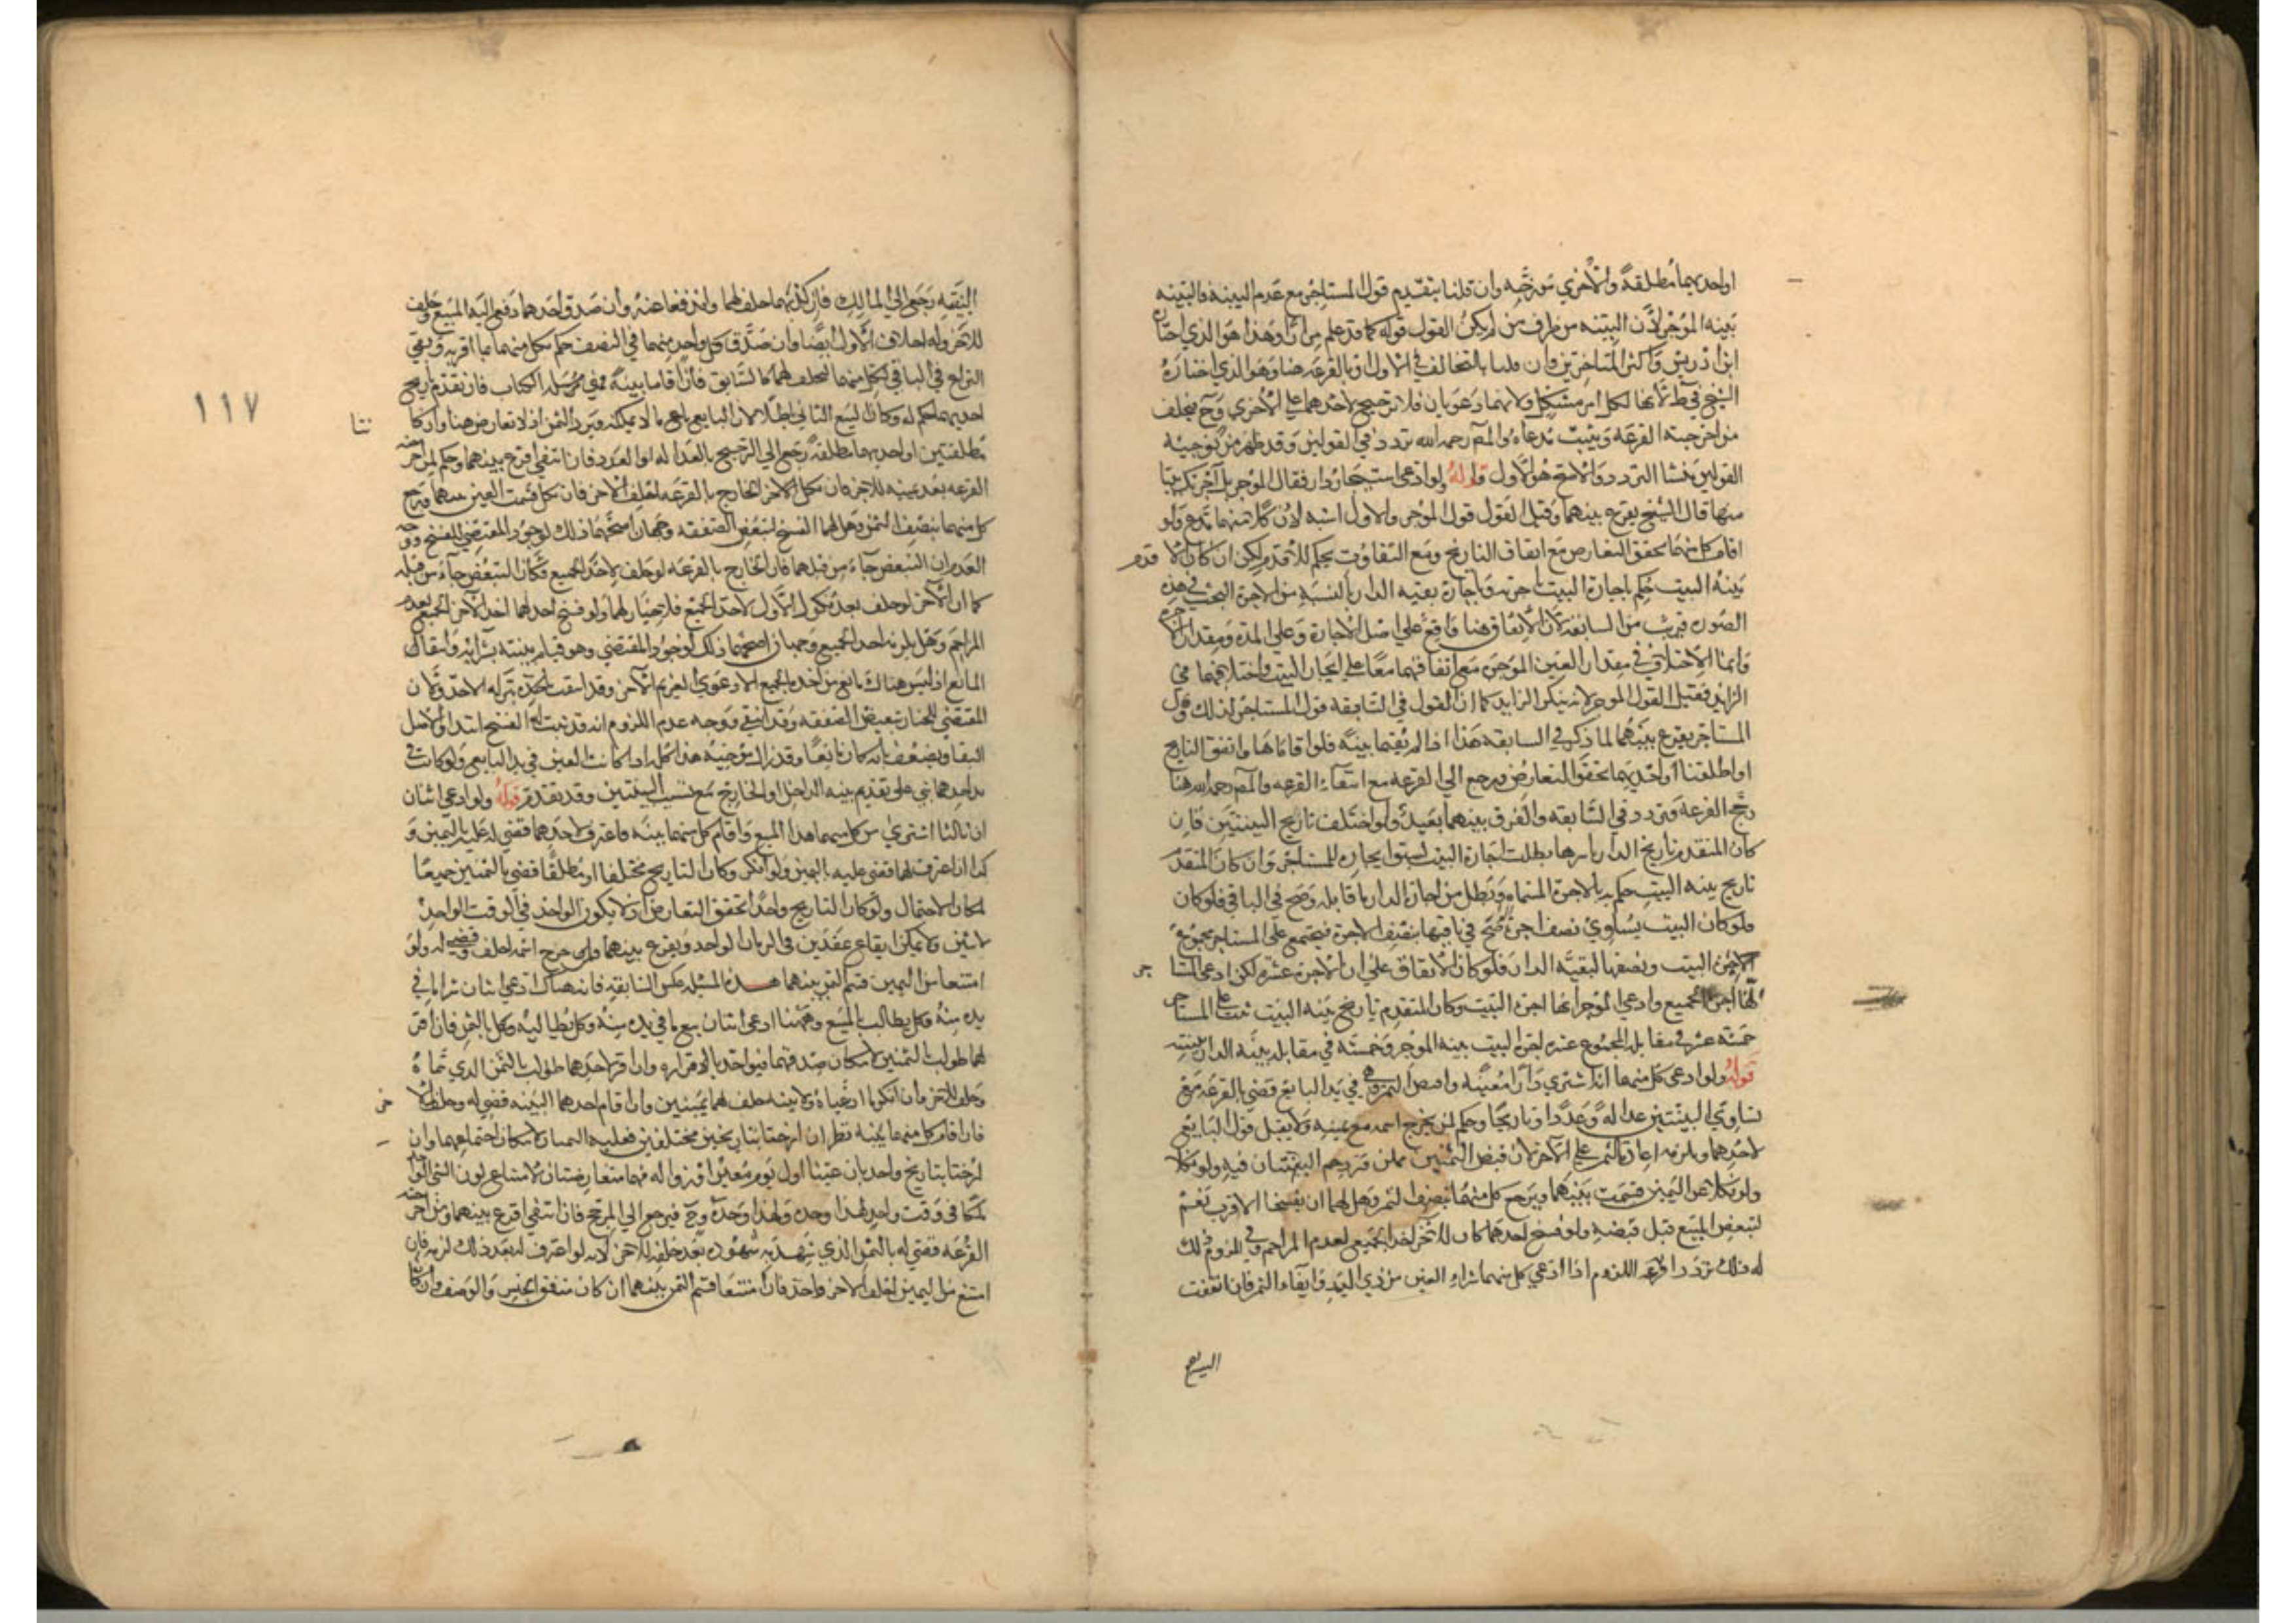 او احديهما مطلقة والاخري مورخه وان قلنا بتقديم قول المستاجر مع عدم البينة فالبينه
بينه الموجر لان البينه من طرف من لم يكن القول قوله كما قد علم مرارا وهذا هو الذي اختاره
ابن ادريس واكثر المتاخرين وان قلنا بالتحالف في الاول او بالقرعه هنا وهو الذي اختاره
الشيخ في ط لانها لكل امر مشكل ولانهما دعويان فلا ترجيح لاحدهما علي الاخري وح يحلف
من اخرجته القرعه ويثبت مدعاه والمص رحمه الله تردد في القولين وقد ظهر من توجيه
القولين منشا التردد والاصح هو الاول قوله ولو ادعي استيجار دار فقال الموجر بل آجرتك بيتا
منها قال الشيخ يقرع بينهما وقيل القول قول الموجر والاول اشبه لان كلا منهما مدع ولو
اقام كل منهما تحقق التعارض مع اتفاق التاريخ ومع التفاوت يحكم للاقدم لكن ان كان الاقدم
بينه البيت حكم باجارة البيت باجرته وباجارة بقيه الدار بالنسبة من الاجرة البحث في هذه
الصوره قريب من السابقه لان الاتفاق هنا واقع علي اصل الاجارة وعلي المدة ومقدار الاجرة
وانما الاختلاف في مقدار العين الموجره مع اتفاقهما معا علي ايجار البيت واختلافهما في
الزايد فقيل القول قول الموجر لانه ينكر الزايد كما ان القول في السابقه قول المستاجر لذلك وقيل
المستاجر يقرع بينهما لما ذكر في السابقه هذا اذا لم يقيما بينة فلو اقاماها واتفق التاريخ
او اطلقتا او احديهما تحقق التعارض ويرجع الي القرعه مع انتفاء القرعه والمص رحمه الله هنا
رجح القرعه وتردد في السابقه والفرق بينهما بعيد ولو اختلف تاريخ البينتين فان
كان المتقدم تاريخ الدار باسرها بطلت اجارة البيت لسبق ايجاره للمستاجر وان كان المتقدم
تاريخ بينه البيت حكم به بالاجرة المسماه وتبطل من اجارة الدار ما قابله وصح في الباقي فلو كان
فلو كان البيت يساوي نصف اجرة صح في باقيها بنصف الاجرة فيجتمع علي المستاجر مجموع
اجرة البيت ونصفها لبقية الدار فلو كان الاتفاق علي ان الاجرة عشرة لكن ادعي المستاجر
انها اجرة الجميع وادعي الموجر انها اجرة البيت وكان المتقدم تاريخ بينه البيت ثبت علي المستاجر
خمسة عشر في مقابله المجموع عشرة اجرة البيت ببينه الموجر وخمسة في مقابله بقية الدار ببينته
قوله ولو ادعي كل منهما انه اشتري دارا معينة واقبض الثمن وهي في يد البايع قضي بالقرعه مع
تساوي البينتين عداله وعددا وتاريخا وحكم لمن يخرج اسمه مع يمينه ولا يقبل قول البايع
لاحدهما ويلزمه اعادة الثمن علي الاخر لان قبض الثمنين ممكن فتزدحم البينتان فيه ولو نكلا
ولو نكلا عن اليمين قسمت بينهما ويرجع كل منهما بنصف الثمن وهل لهما ان يفسخا الاقرب نعم
لتبعض المبيع قبل قبضه ولو فسخ احدهما كان للاخر اخذ الجميع لعدم المزاحم وفي لزوم ذلك
له ذلك تردد اقربه اللزوم اذا ادعي كل منهما شراء العين من ذي اليد وايفاء الثمن فان اتفقت
البينه
١١٧
البينه رجع الي المالك فان كذبهما حلف لهما واندفعا عنه وان صدق احدهما دفع اليه المبيع وحلف
للاخر وله احلاف الاول ايضا وان صدق كل واحد منهما في النصف حكم لكل منهما بما اقر به وبقي
النزاع في الباقي لكل منهما فيحلف لهما كالسابق فان اقاما بينة فهي مسئله الكتاب فان تقدم تاريخ
احديهما حكم له وكان البيع الثاني باطلا لان البايع باع ما لا يملكه ويرد الثمن اذ لا تعارض هنا وان كانتا
مطلقتين او احديهما مطلقه رجع الي الترجيح بالعداله او العدد فان انتفي اقرع بينهما وحكم لمن اخرجته
القرعه بعد يمينه للاخر فان نكل الاخر الخارج بالقرعه احلف الاخر فان نكل قسمت العين بينهما ورجع
كل منهما بنصف الثمن وهل لهما الفسخ لتبعض الصفقه وجهان اصحهما ذلك لوجود المقتضي للفسخ ووجه
العدم ان التبعض جاء من قبلهما فان الخارج بالقرعه لو حلف لاخذ الجميع فكان التبعض جاء من قبله
كما ان الاخر لو حلف بعد نكول الاول لاخذ الجميع فلا خيار لهما ولو فسخ احدهما اخذ الاخر الجميع لعدم
المزاحم وهل يلزمه اخذ الجميع وجهان اصحهما ذلك لوجود المقتضي وهو قيام بينته بشرائه وانتفاء
المانع اذ ليس هناك مانع من اخذه الجميع الا دعوي الغريم الاخر وقد اسقط حقه بتركه الاخذ ولان
المقتضي للخيار تبعيض الصفقه وقد انتفي ووجه عدم اللزوم انه قد ثبت له الفسخ ابتداء والاصل
البقاء ويضعف بانه كان تابعا وقد زال موجبه هذا كله اذا كانت العين في يد البايع ولو كانت في
يد احدهما بني علي تقديم بينه الداخل او الخارج مع تسبيب البينتين وقد تقدم قوله ولو ادعي اثنان
ان ثالثا اشتري من كل منهما هذا المبيع واقام كل منهما بينة فاعترف لاحدهما قضي له عليه باليمين و
كذا ان اعترف لهما قضي عليه باليمين ولو انكر وكان التاريخ مختلفا او مطلقا قضي بالثمنين جميعا
لمكان الاحتمال ولو كان التاريخ واحدا تحقق التعارض اذ لا يكون الواحد في الوقت الواحد
لاثنين ولا يمكن ايقاع عقدين في الزمان الواحد ويقرع بينهما فمن خرج اسمه احلف وقضي له ولو
امتنعا من اليمين قسم الثمن بينهما هذه المسئله عكس السابقه فان هناك ادعي اثنان شراء ما في
يده منه وكل يطالب بالمبيع وهنا ادعي اثنان بيع ما في يده منه وكل يطالبه وكل بالثمن فان اقر
لهما طولب بالثمنين لامكان صدقهما فيواخذ باقراره وان اقر لاحدهما طولب بالثمن الذي سماه
وحلف للاخر فان انكر ما ادعياه ولا بينه حلف لهما يمينين وان اقام احدهما البينه قضي له وحلف للاخر
فان اقام كل منهما بينة نظر ان ارختا بتاريخين مختلفين فعليه الثمنان لامكان اجتماعهما وان
ارختا بتاريخ واحد بان عينتا اول يوم معين او زواله فهما متعارضتان لامتناع كون الشي الواحد
ملكا في وقت واحد لهذا وحده ولهذا وحده وح فيرجع الي المرجح فان انتفي اقرع بينهما فمن اخرجته
القرعه قضي له بالثمن الذي شهد به شهوده بعد حلفه للاخر لانه لو اعترف له بعد ذلك لزمه فان
امتنع من اليمين احلف الاخر واخذ فان امتنعا قسم الثمن بينهما ان كان متفق الجنس والوصف وان كان